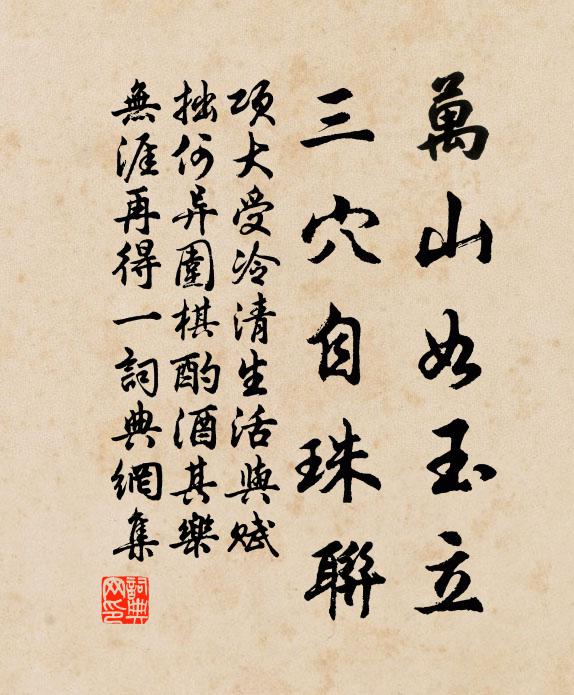 萬山如玉立
三穴自珠聯
項大受冷清生活與賦
拙何异圍棋酌酒其樂
無涯再得一詞典網集
詞典網印